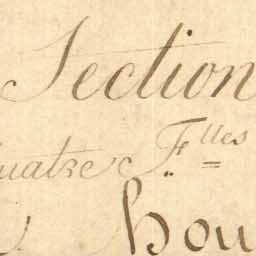 Section
uatre Flles
hou